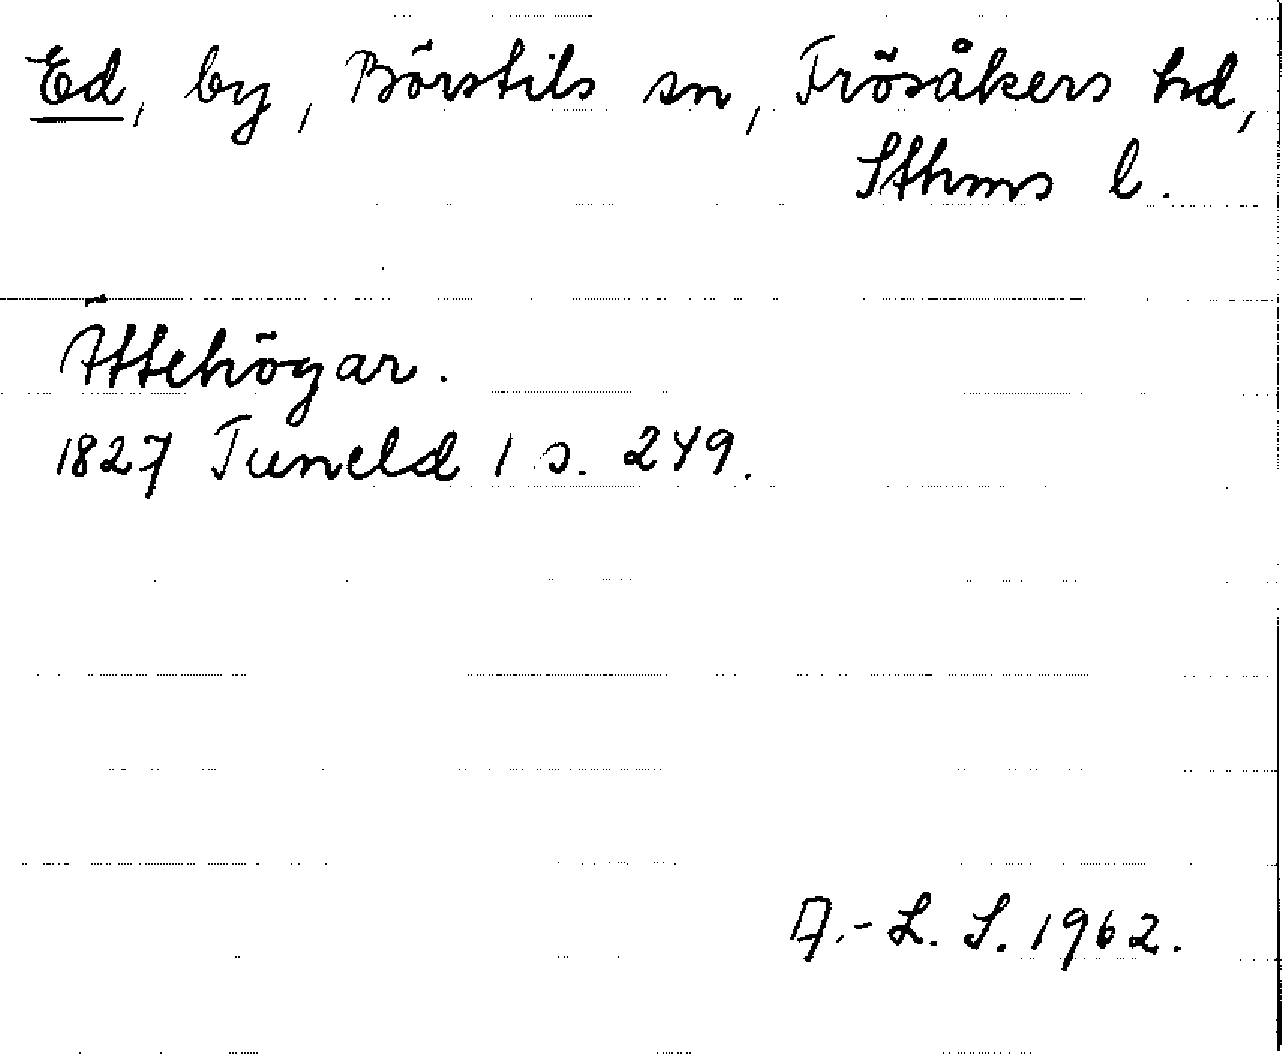 Ed, by, Börstils sn, Frösåkers hd,
Sthms l.
Ättehögar.
1827 Tuneld 1 s. 249.
A.-L. S. 1962.